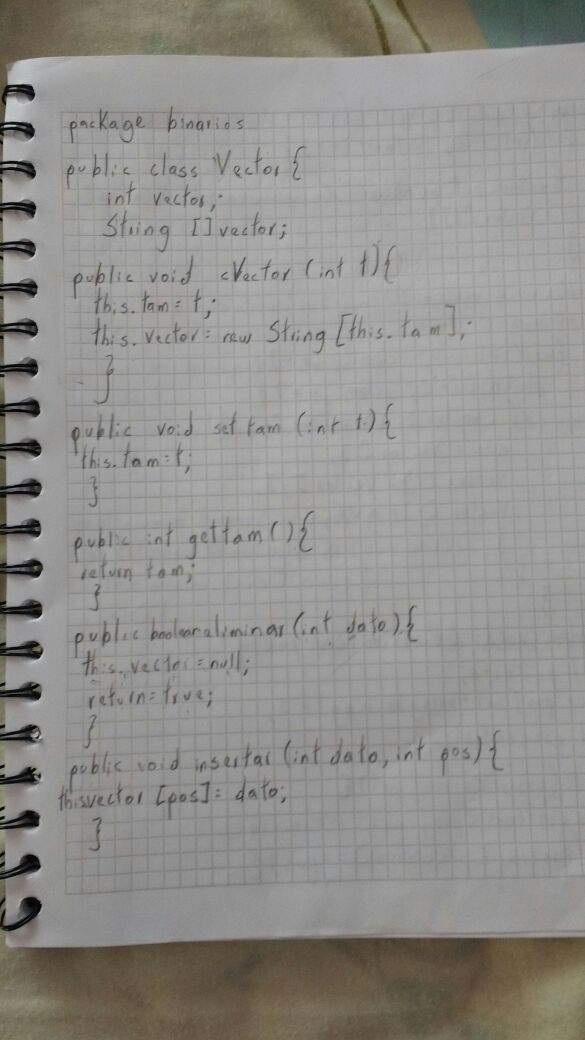 package binarios
public class Vector {
int vector;
String [] vector;
public void cVector (int t) {
this.tam = t;
this.vector = new String [this.tam];
}
public void set tam (int t) {
this.tam = t;
}
public int gettam () {
return tam;
}
public boolean aliminar (int dato) {
this.vector = null;
return = true;
}
public void insertar (int dato, int pos) {
thisvector [pos] = dato;
}